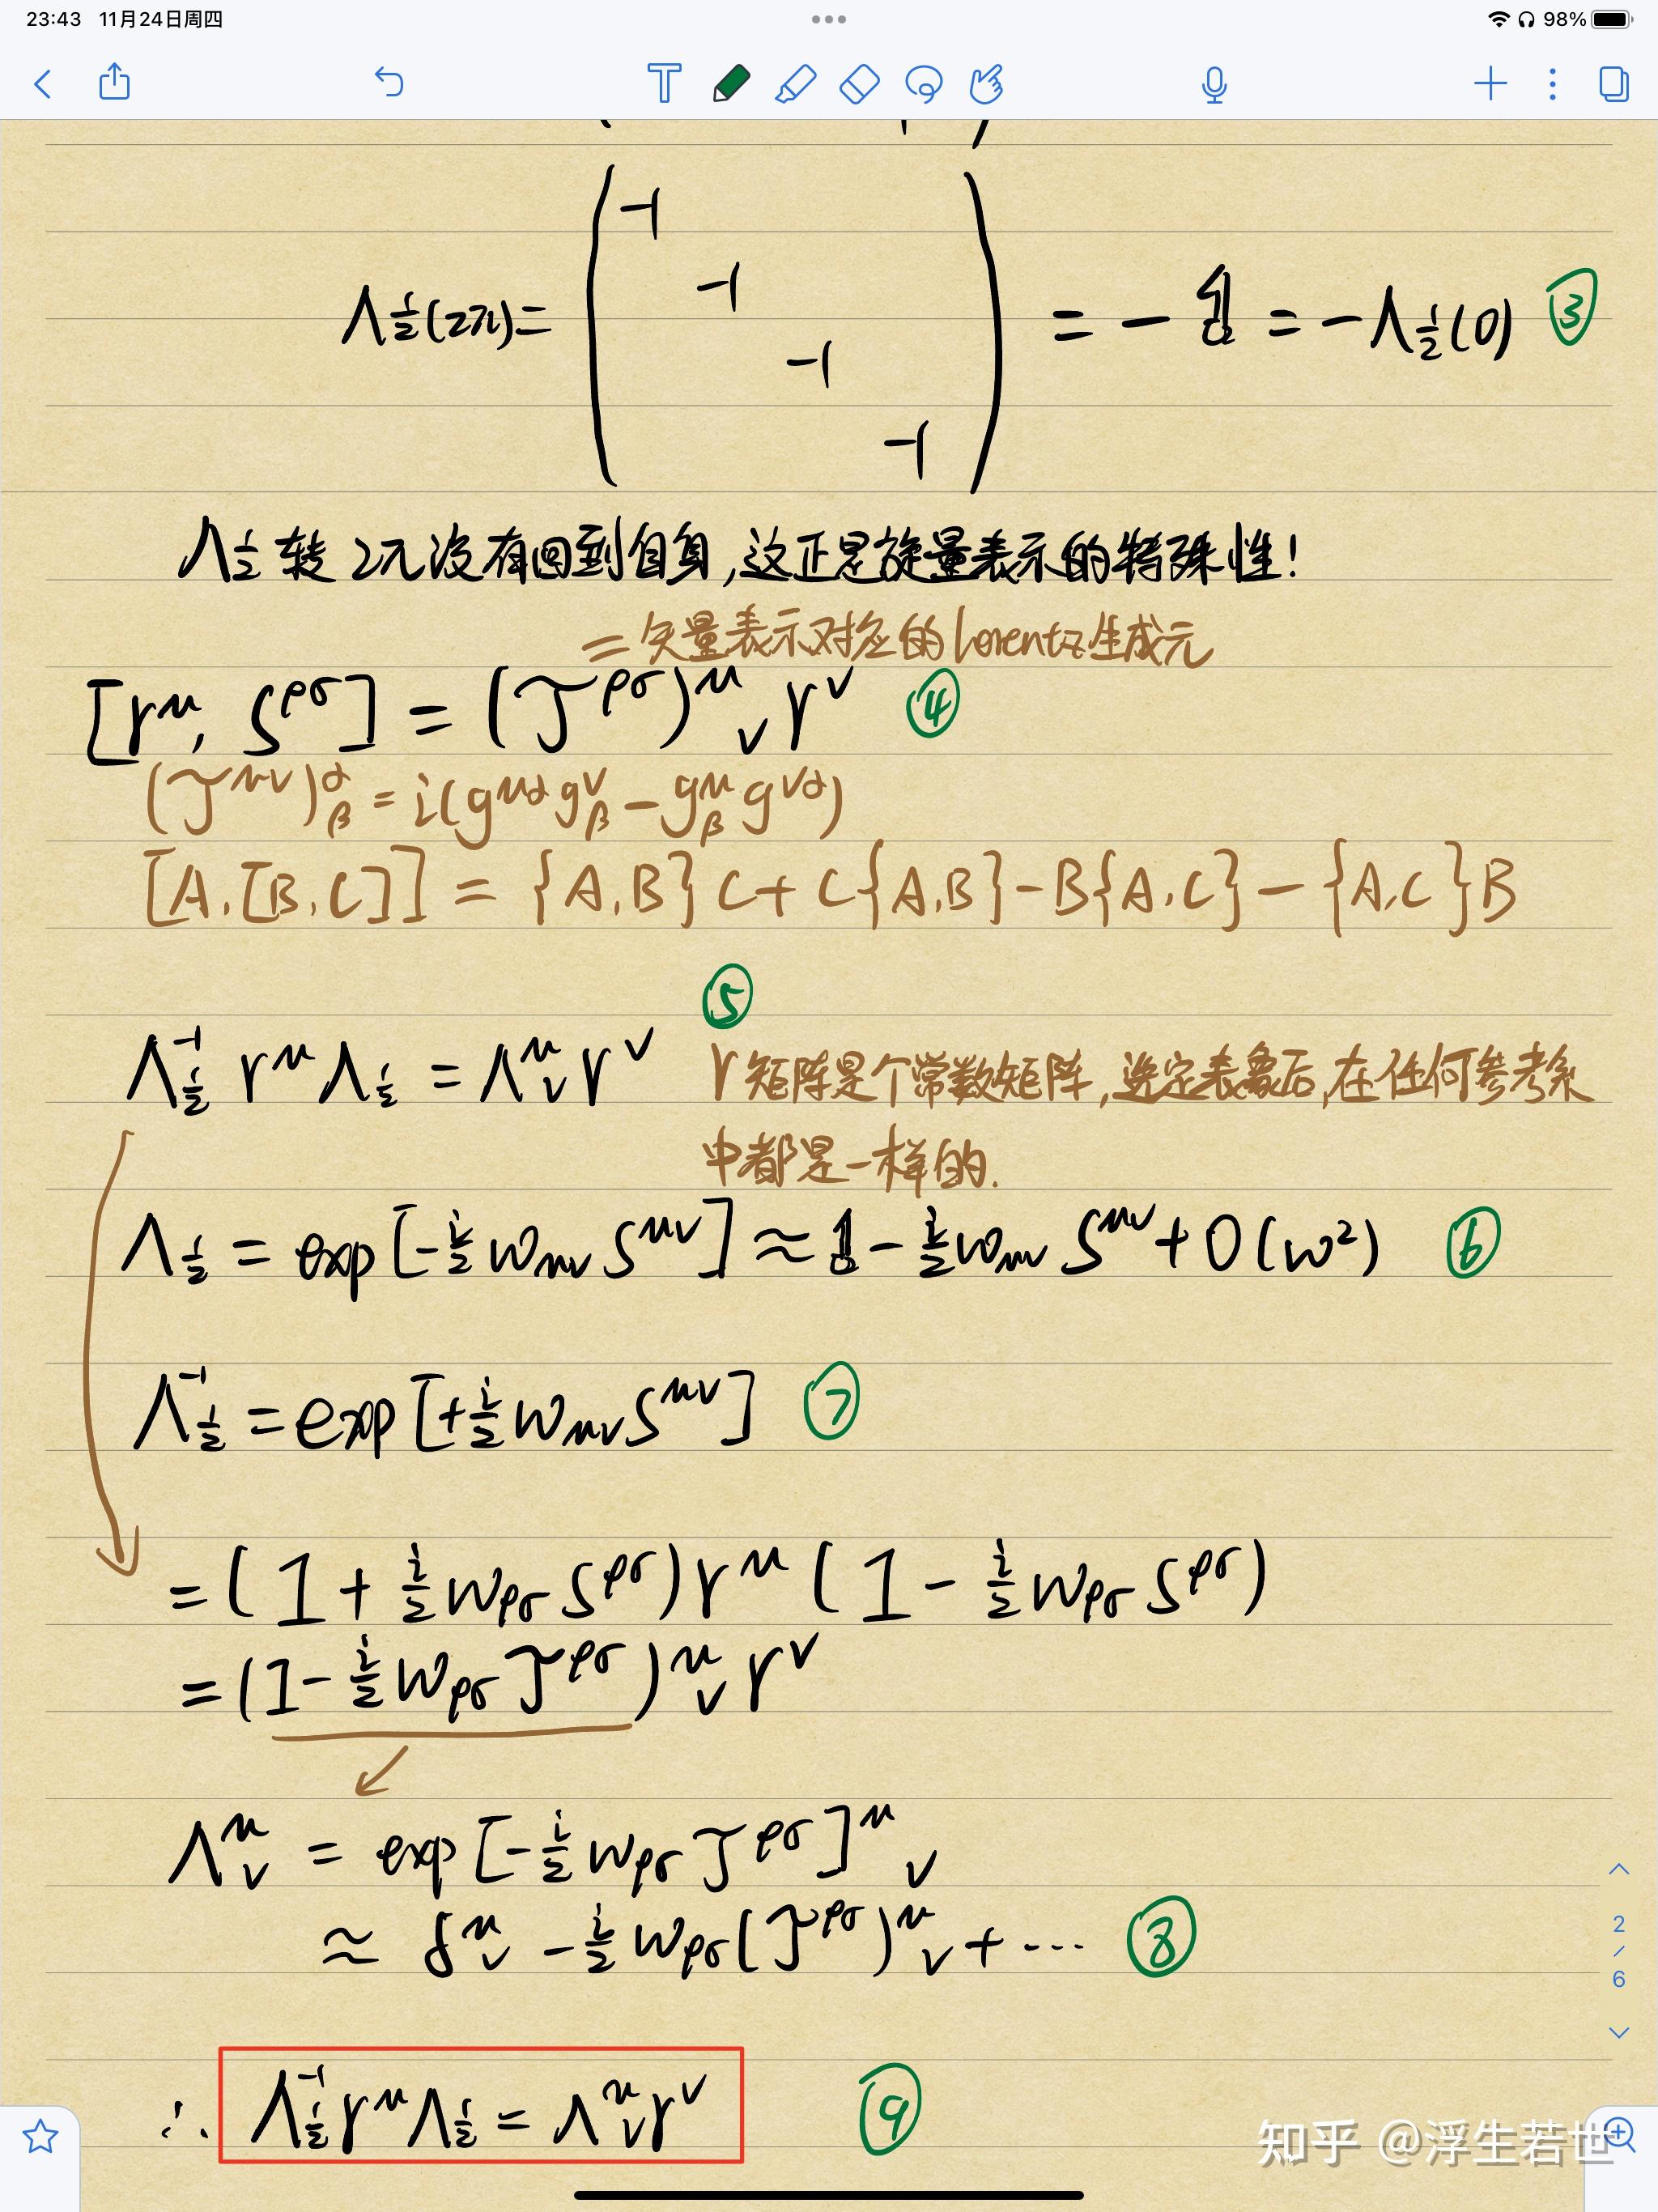 23:43 11月24日周四
98%
Λ½(2π)= (-1 -1 -1 -1) = -𝟙 = -Λ½(0) ③
Λ½ 转 2π 没有回到自身,这正是旋量表示的特殊性!
=矢量表示对应的Lorentz生成元
[γ^μ, S^ρσ] = (J^ρσ)^μ_ν γ^ν ④
(J^μν)^α_β = i(g^μα g^ν_β - g^μ_β g^να)
[A,[B,C]] = {A,B}C+C{A,B}-B{A,C}-{A,C}B
⑤
Λ½^-1 γ^μ Λ½ = Λ^μ_ν γ^ν γ矩阵是个常数矩阵,选定表象后,在任何参考系
中都是一样的.
Λ½ = exp[-i/2 ω_μν S^μν] ≈ 𝟙 - i/2 ω_μν S^μν + O(ω²) ⑥
Λ½^-1 = exp[+i/2 ω_μν S^μν] ⑦
= (1 + i/2 ω_ρσ S^ρσ) γ^μ (1 - i/2 ω_ρσ S^ρσ)
= (1 - i/2 ω_ρσ J^ρσ)^μ_ν γ^ν
Λ^μ_ν = exp[-i/2 ω_ρσ J^ρσ]^μ_ν
≈ δ^μ_ν - i/2 ω_ρσ (J^ρσ)^μ_ν + ··· ⑧
2
/
6
∴ Λ½^-1 γ^μ Λ½ = Λ^μ_ν γ^ν ⑨
知乎 @浮生若世